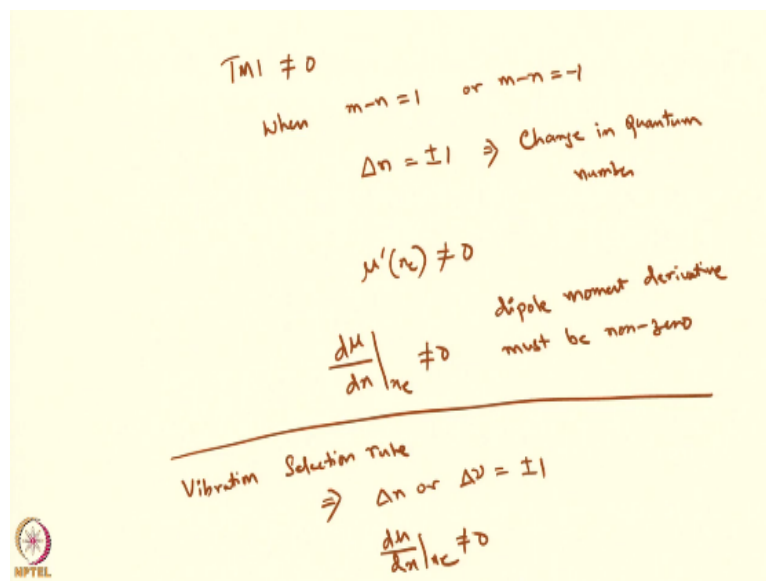 TMI ≠ 0
When m-n = 1 or m-n = -1
Δn = ±1 ⇒ Change in Quantum
number
μ'(xe) ≠ 0
dμ/dx|xe ≠ 0 dipole moment derivative
must be non-zero
Vibration Selection rule
⇒ Δn or Δν = ±1
dμ/dx|xe ≠ 0
NPTEL